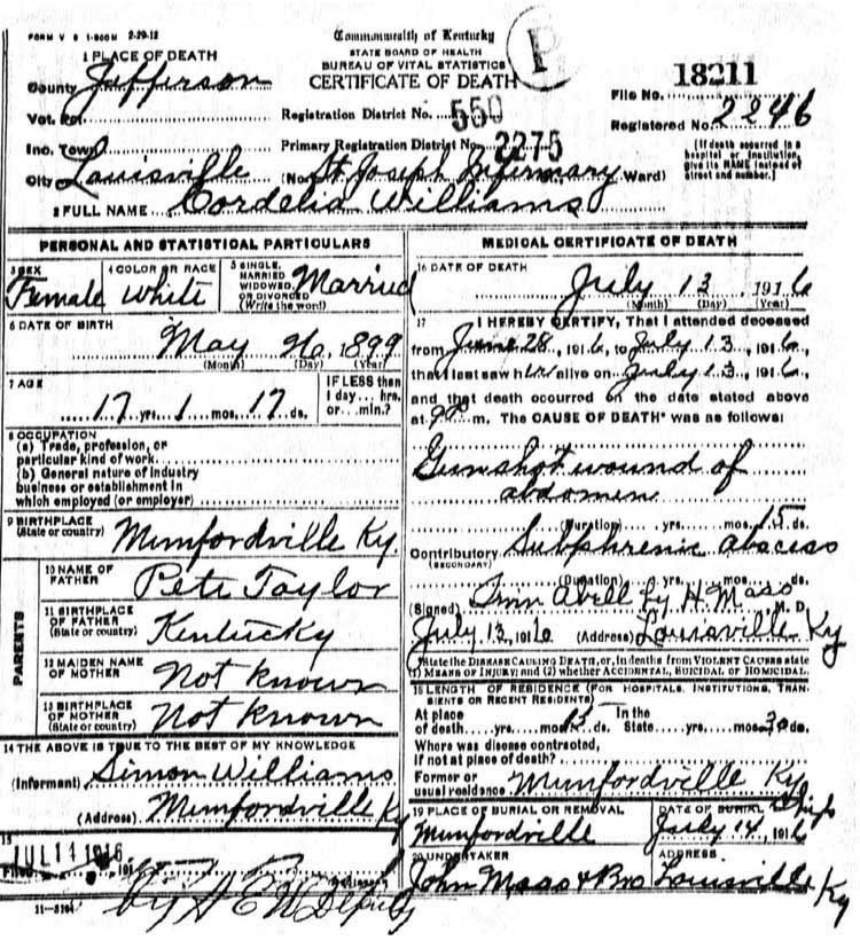 FORM V S 1-500M 2-29-12
Commonwealth of Kentucky
STATE BOARD OF HEALTH
BUREAU OF VITAL STATISTICS
CERTIFICATE OF DEATH
P
1 PLACE OF DEATH
County Jefferson
Vot. Pct.
Inc. Town
City of Louisville (No. St Joseph Infirmary Ward)
Registration District No. 550
Primary Registration District No. 2275
18211
File No.
Registered No. 2246
(If death occurred in a
hospital or institution,
give its NAME instead of
street and number.)
2 FULL NAME Cordelia Williams
PERSONAL AND STATISTICAL PARTICULARS
3 SEX
Female
4 COLOR OR RACE
White
5 SINGLE,
MARRIED
WIDOWED,
OR DIVORCED
(Write the word)
Married
6 DATE OF BIRTH
May 26, 1899
(Month) (Day) (Year)
7 AGE
17 yrs. 1 mos. 17 ds.
IF LESS than
1 day... hrs.
or... min.?
8 OCCUPATION
(a) Trade, profession, or
particular kind of work
(b) General nature of industry
business or establishment in
which employed (or employer)
9 BIRTHPLACE
(State or country) Mumfordville Ky.
PARENTS
10 NAME OF
FATHER Pete Taylor
11 BIRTHPLACE
OF FATHER
(State or country) Kentucky
12 MAIDEN NAME
OF MOTHER Not Known
13 BIRTHPLACE
OF MOTHER
(State or country) Not Known
14 THE ABOVE IS TRUE TO THE BEST OF MY KNOWLEDGE
(Informant) Simon Williams
(Address) Mumfordville Ky
15
Filed JUL 14 1916 191
by H E W Deputy
11-3184
MEDICAL CERTIFICATE OF DEATH
16 DATE OF DEATH
July 13 1916
(Month) (Day) (Year)
17 I HEREBY CERTIFY, That I attended deceased
from June 28, 1916, to July 13, 1916,
that I last saw her alive on July 13, 1916,
and that death occurred on the date stated above
at 9 P. m. The CAUSE OF DEATH* was as follows:
Gunshot wound of
abdomen
(Duration) yrs. mos. 15 ds.
Contributory Subphrenic abscess
(SECONDARY)
(Duration) yrs. mos. ds.
(Signed) Irvin Abell by H. Mass M. D.
July 13, 1916 (Address) Louisville Ky
*State the DISEASE CAUSING DEATH, or, in deaths from VIOLENT CAUSES state
(1) MEANS OF INJURY; and (2) whether ACCIDENTAL, SUICIDAL OR HOMICIDAL.
18 LENGTH OF RESIDENCE (FOR HOSPITALS, INSTITUTIONS, TRAN-
SIENTS OR RECENT RESIDENTS)
At place In the
of death yrs. mos. 15 ds. State yrs. mos. ds.
Where was disease contracted,
If not at place of death?
Former or
usual residence Mumfordville Ky
19 PLACE OF BURIAL OR REMOVAL
Mumfordville
DATE OF BURIAL Ship
July 14, 1916
20 UNDERTAKER
John Maas & Bro
ADDRESS
Louisville Ky